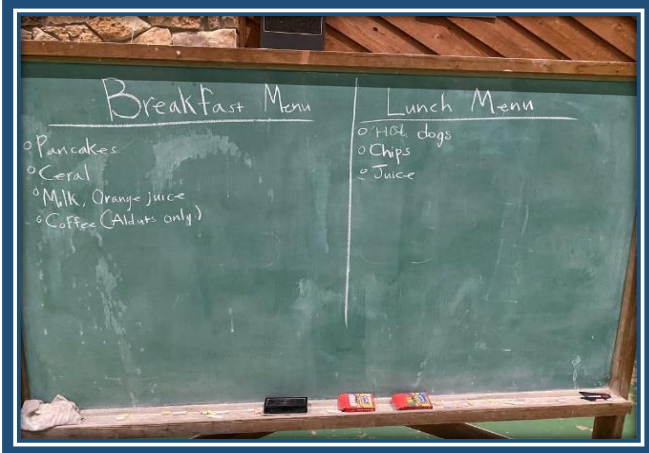 Breakfast Menu
○ Pancakes
○ Ceral
○ Milk, Orange juice
○ Coffee (Alduts only)
Lunch Menu
○ Hot dogs
○ Chips
○ Juice